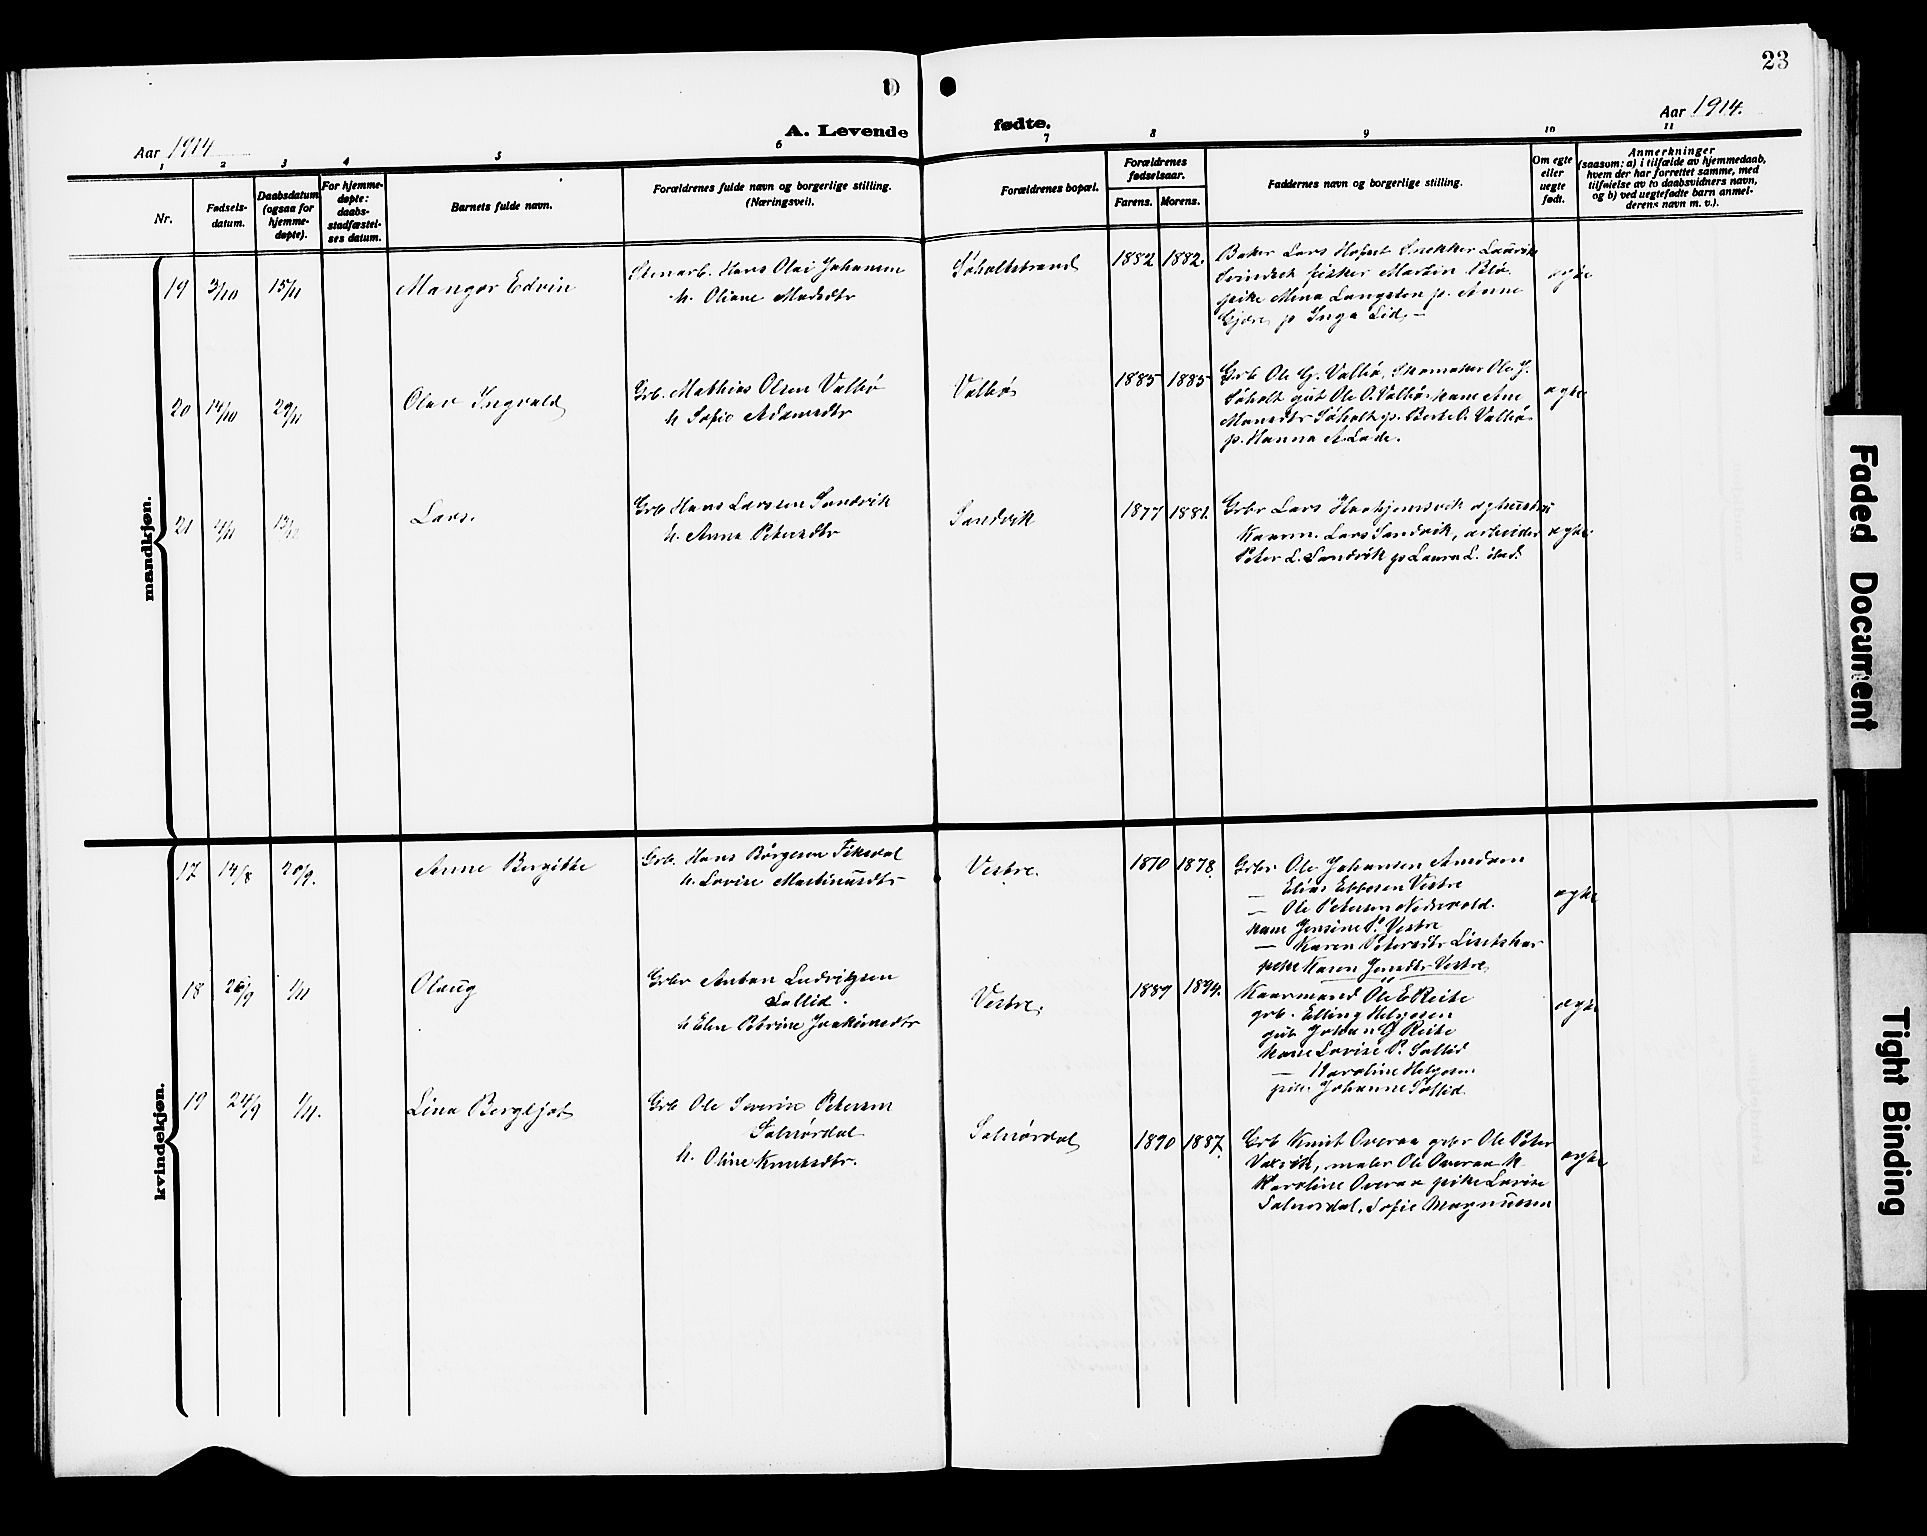 23
Aar 1914
A. Levende
fødte.
Aar 1914.
1 2 3 4 5 6 7 8 9 10 11
Nr.
Fødsels-
datum.
Daabsdatum
(ogsaa for
hjemme-
døpte).
For hjemme-
døpte:
daabs-
stadfæstel-
ses datum.
Barnets fulde navn.
Forældrenes fulde navn og borgerlige stilling.
(Næringsvei).
Forældrenes bopæl.
Forældrenes
fødselsaar.
Farens. Morens.
Faddernes navn og borgerlige stilling.
Om egte
eller
uegte
født.
Anmerkninger
(saasom: a) i tilfælde av hjemmedaab,
hvem der har forrettet samme, med
tilføielse av to daabsvidners navn,
og b) ved uegtefødte barn anmel-
derens navn m. v.).
mandkjøn.
19 3/10 15/11
Mangor Edvin
Stenarb. Hans Olai Johansen
h. Oliane Madsdtr
Søholtstrand
1882 1882.
Baker Lars Snekker Laurits
fisker Martin
pike Mina Langsten p. Anne
p Inga Lid, —
egte
20 14/10 29/11
Olav Ingvald
Grb. Mathias Olsen Valbø
h Sofie Adamsdtr
Valbø
1885 1885
Grb Ole G. Valbø, Skomaker Ole J.
Søholt gut Ole O. Valbø kone Ane
Monsdtr Søholt p. Berte O. Valbø
p. Hanna A. Lade.
egte
21 4/11 13/12
Lars.
Grb Hans Larssen Sandvik
h. Anna Petersdtr
Sandvik
1877 1881.
Grbr Lars Haahjemsvik og hustru
Kaarm. Lars Sandvik, arbeider
Peter L. Sandvik p Laura L. ibid.
egte
kvindekjøn.
17 14/8 20/9.
Anne Bergitte
Grb. Hans Børgesen Fiksdal
h. Lovise Martinusdtr
Vestre.
1870 1878.
Grbr. Ole Johansen Amdam
— Elias Ebbesen Vestre
— Ole Petersen Nedrevold.
kone Jensine P. Vestre
— Karen Petersdtr
pike Karen Jensdtr Vestre,
egte
18 26/9 1/11
Olaug
Grbr Anton Ludvigsen
Sollid.
h Elen Petrine Joakimsdtr
Vestre,
1889 1894.
Kaarmand Ole E Reite
grb. Elling Helgesen
gut Johan O Reite
kone Lovise P. Sollid
— Karoline Helgesen
pike Johanne Sollid.
egte
19 24/9 1/11.
Lina Bergljot
Grb Ole Severin Petersen
Solnørdal
h. Oline Knutsdtr.
Solnørdal
1890 1887.
Grb Knut Overaa grbr Ole Peter
Vaxvik, maler Ole Overaa k
Karoline Overaa pike Lovise
Solnørdal, Sofie Magnussen
egte
Faded Document
Tight Binding